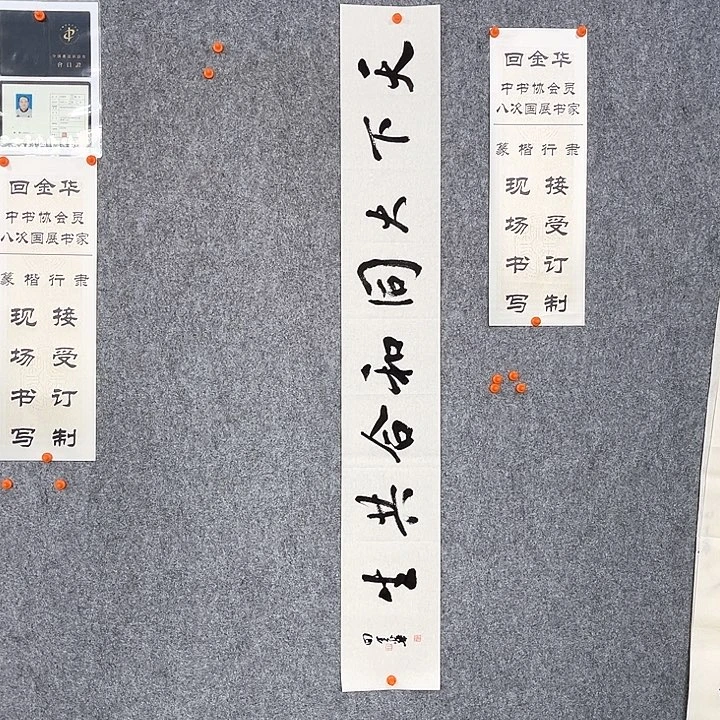 會員證
回金华
中书协会员
八次国展书家
篆楷行隶
现场书写
接受订制
天下大同和合共生
回金华
回金华
中书协会员
八次国展书家
篆楷行隶
现场书写
接受订制